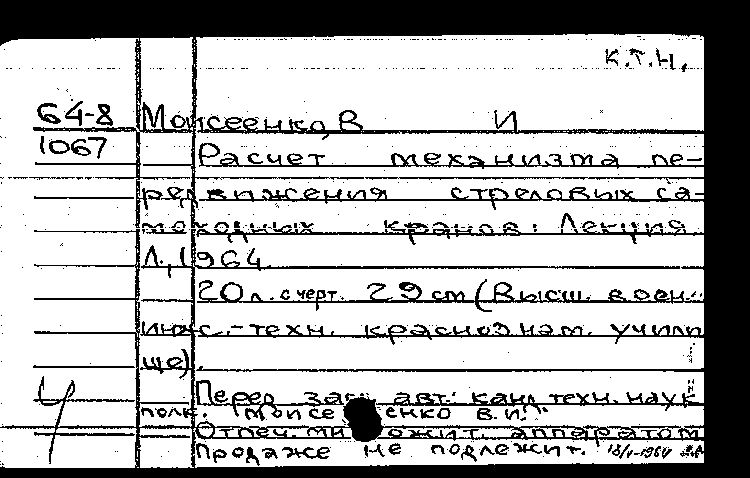 к.т.н.
64-8
1067
Моисеенко, В И
Расчет механизма пе-
редвижения стреловых са-
моходных кранов: Лекция
Л., 1964
20 л. с черт. 29 см (Высш. воен.
инж.-техн. краснознам. учили
ще).
Перед загл. авт.: канд. техн. наук
полк. Моисеенко В.И.
Отпеч. множит. аппаратом
Продаже не подлежит.